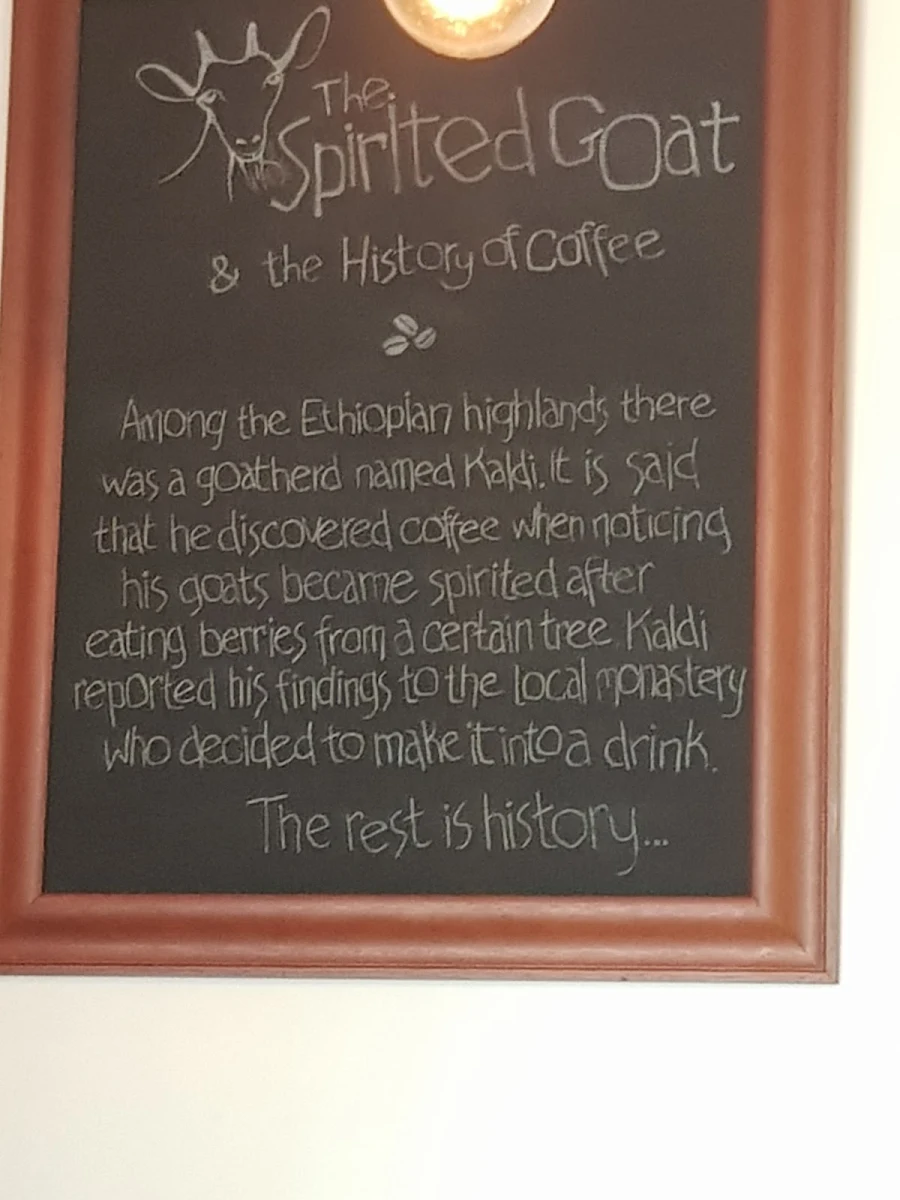 The
Spirited Goat
& the History of Coffee
Among the Ethiopian highlands there
was a goatherd named Kaldi. It is said
that he discovered coffee when noticing
his goats became spirited after
eating berries from a certain tree. Kaldi
reported his findings to the local monastery
who decided to make it into a drink.
The rest is history...